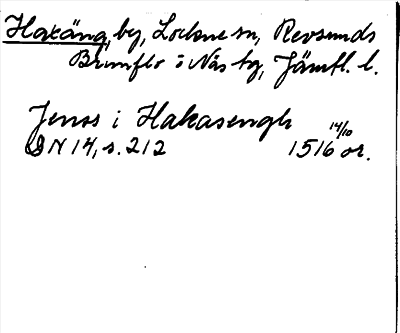 Hakäng, by, Lockne sn, Revsunds
Brunflo o Näs tg, Jämtl. l.
Jenss i Hakasengh
SN 14, s. 212 1516 14/10 or.